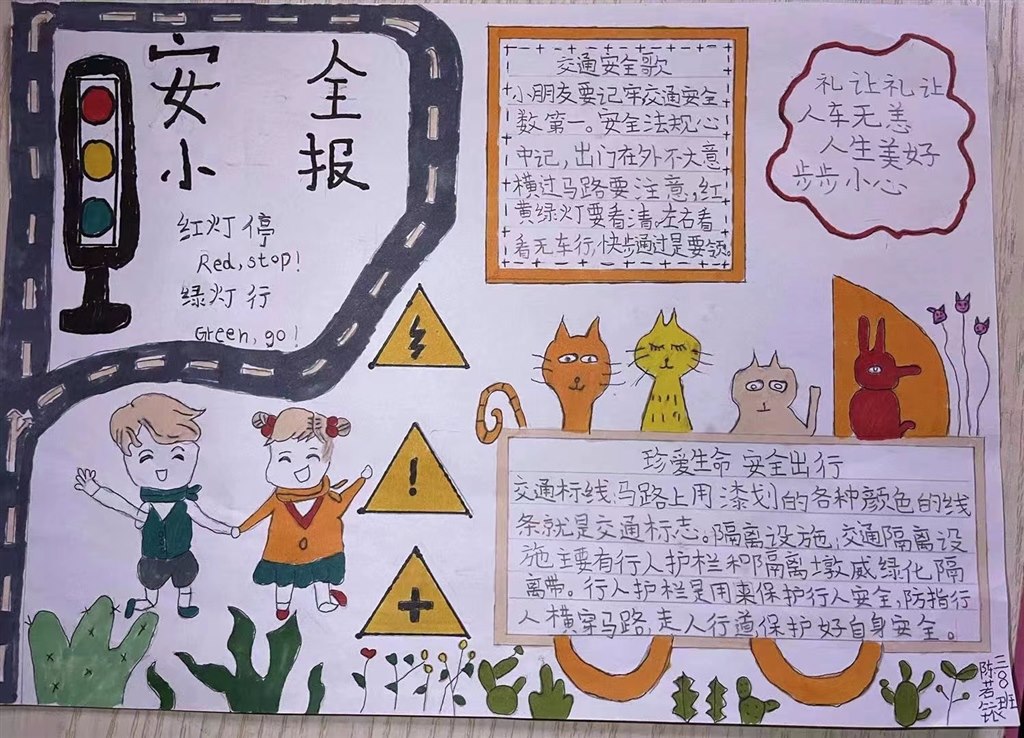 安全
小报
红灯停
Red, stop!
绿灯行
Green, go!
交通安全歌
小朋友要记牢交通安全
数第一。安全法规心
中记,出门在外不大意
横过马路要注意,红
黄绿灯要看清,左右看
看无车行,快步通过是要领。
礼让礼让
人车无恙
人生美好
步步小心
!
珍爱生命 安全出行
交通标线:马路上用漆划的各种颜色的线
条就是交通标志。隔离设施:交通隔离设
施主要有行人护栏和隔离墩或绿化隔
离带。行人护栏是用来保护行人安全,防指行
人横穿马路,走人行道,保护好自身安全。